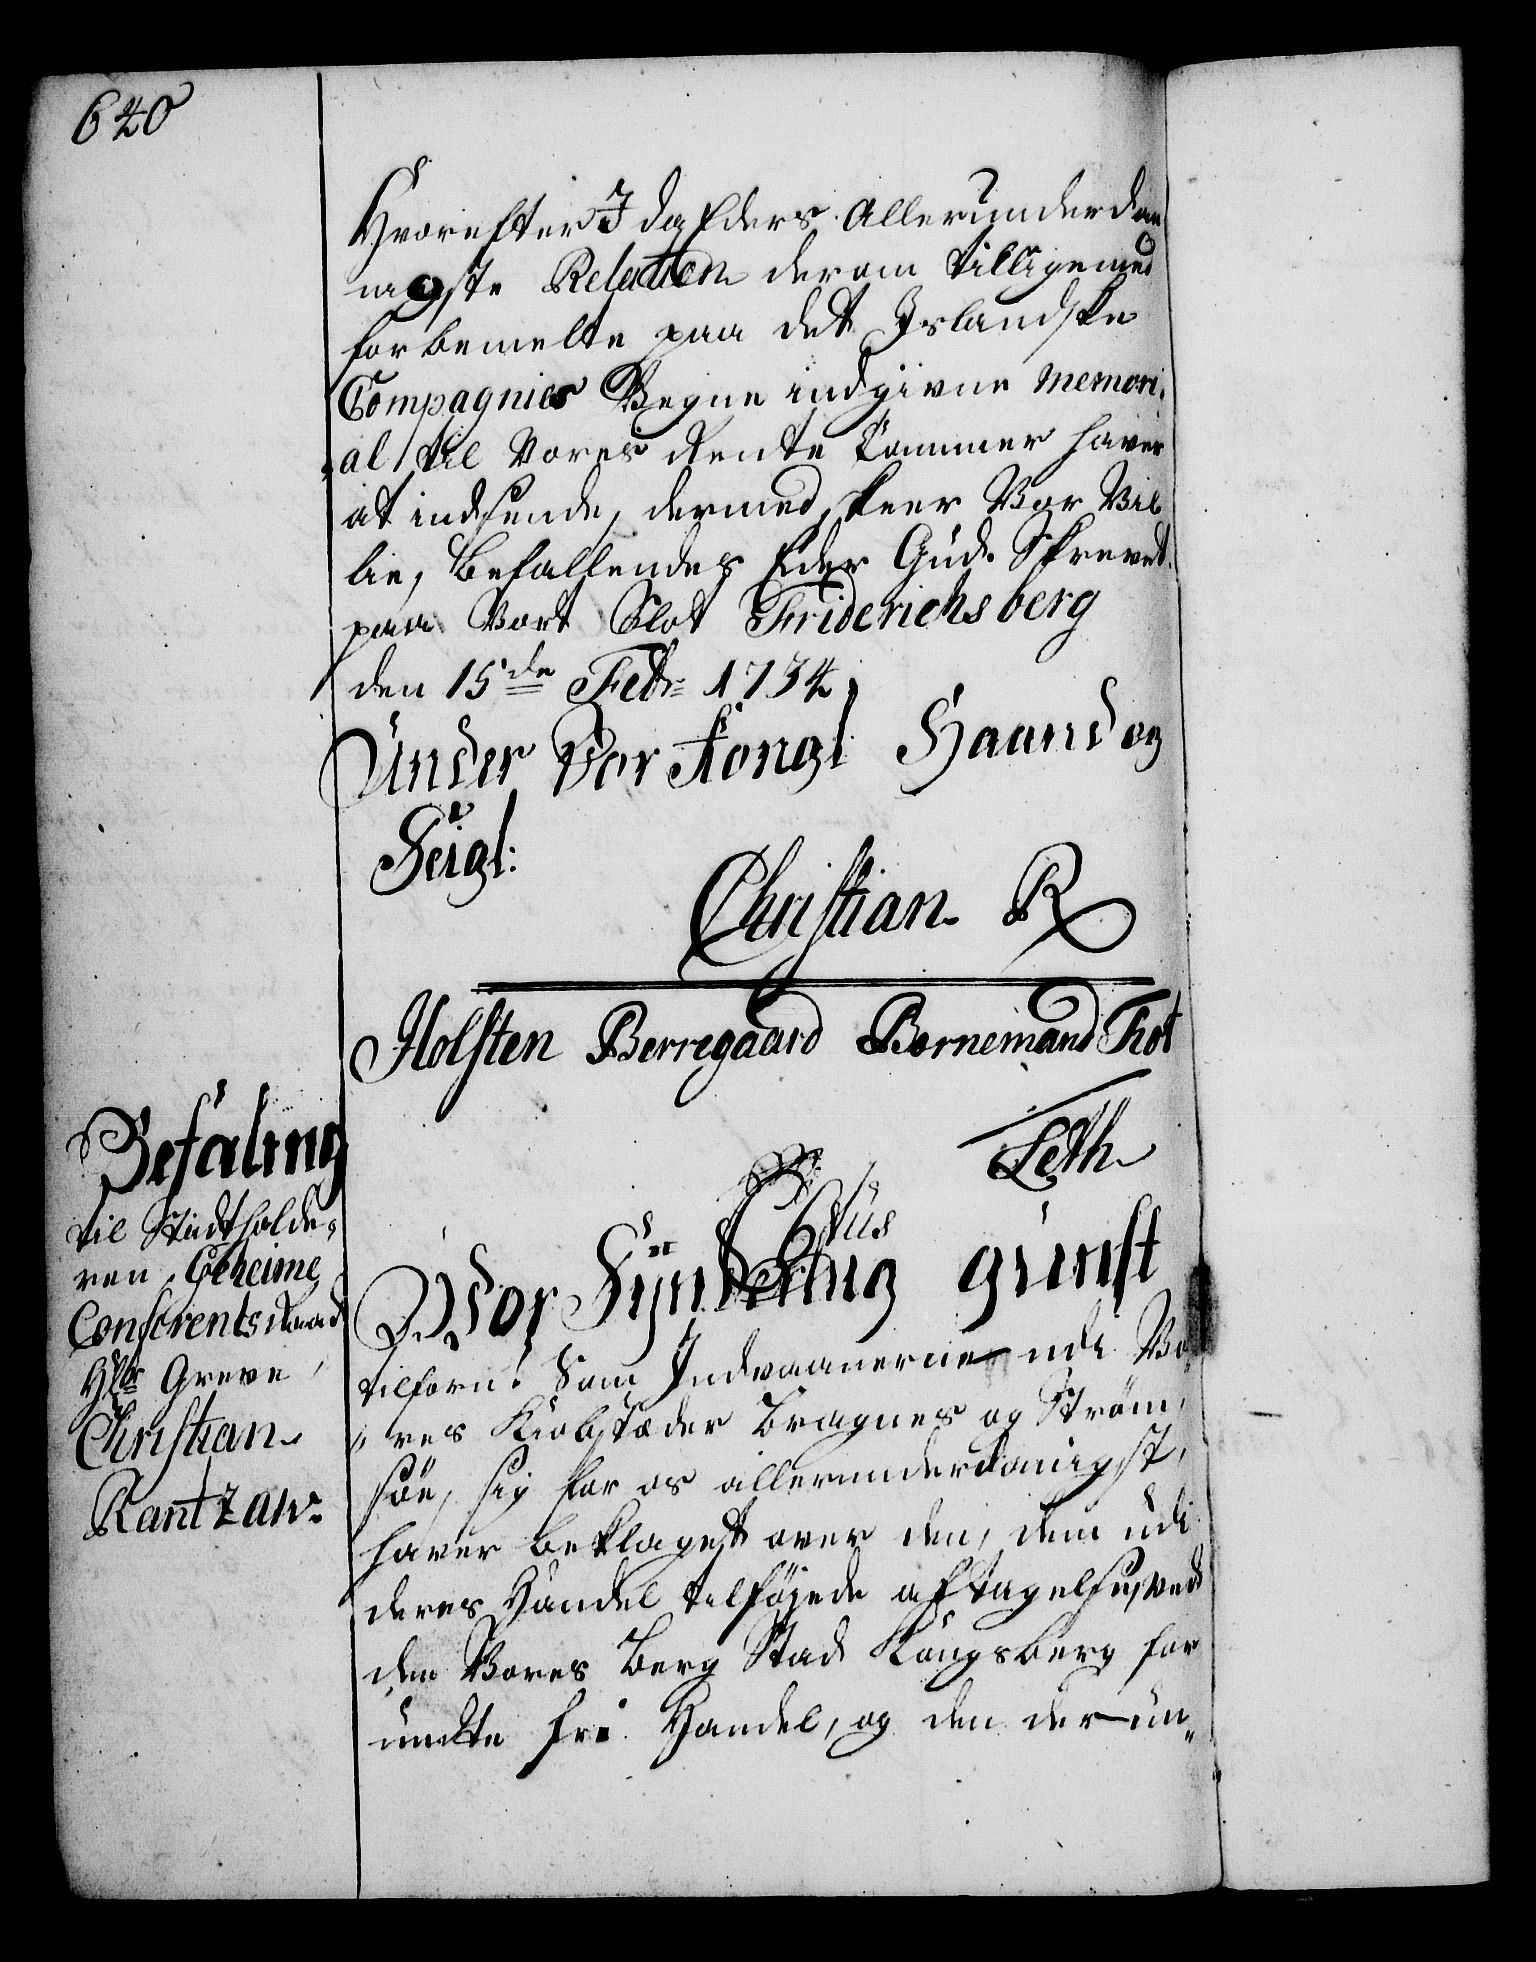 640
Hvorefter I da Eders Allerunderdan
nigste Relation derom tilligemed
forbemelte paa det Islandske
Compagnies Vegne indgivne Memori,
al til Vores Rente Kammer haver
at indsende, dermed skeer Vor Vil
lie, Befallendes Eder Gud. Skrevet
paa Vort Slot Friderichsberg
den 15de Febr: 1734
Under Vor Kongl Haand og
Seigl:
Christian R
Holsten Berregaard Bornemand Fr
Leth
Befaling
til Stadtholde,
ren Geheime
Conferents Raad
Hr Greve
Christian
Rantzau.
C 6tus
Vor synderlig gunst
tilforn! Som Indvaanerne udi Vo
res Kiøbstæder Bragnes og Ström,
söe, sig for os allerunderdanigst,
haver beklaget over den, dem udi
deres Handel tilföjede aftagelse, ved
den Vores Berg Stad Kongsberg for
undte fri Handel, og den der un,